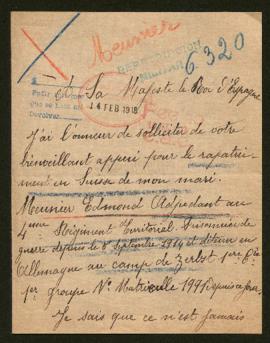 Meunier
6320
REPATRIACION
MILITAR
14 FEB 1918
Pedir informe
que se hará
devolver
A Sa Majesté le Roi d'Espagne
J'ai l'honneur de solliciter de votre
bienveillant appui pour le rapatrie-
ment en Suisse de mon mari.
Meunier Edmond Adjudant au
4eme Régiment Territorial. Prisonnier de
guerre depuis le 8 septembre 1914 et détenu en
Allemagne au camp de Zerbst 1ere Cie
1er groupe N° Matricule 1991
Je sais que ce n'est jamais